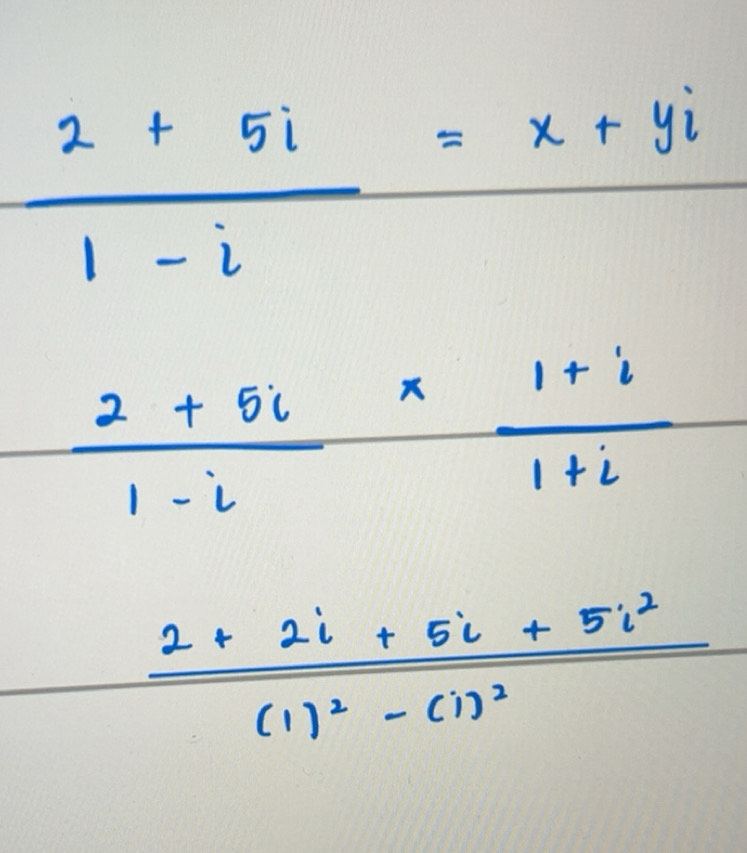 2 + 5i = x + yi
1 - i
2 + 5i x 1 + i
1 - i 1 + i
2 + 2i + 5i + 5i²
(1)² - (i)²